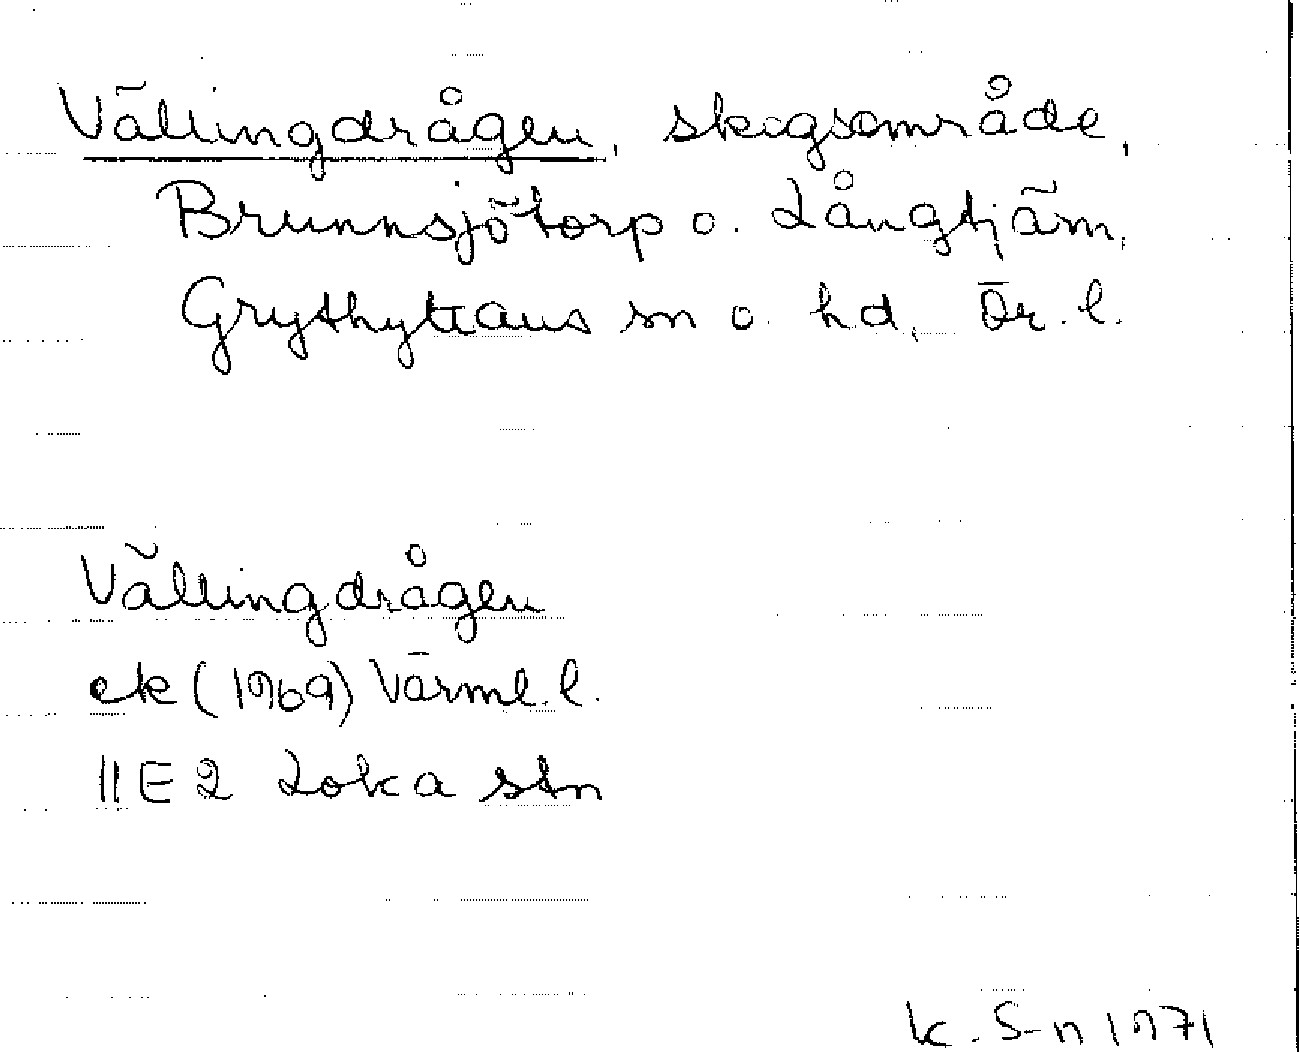 Vällingdrågen, skogsområde,
Brunnsjötorp o. Långtjärn,
Grythyttans sn o. hd, Ör. l.
Vällingdrågen
ek (1969) Värml. l.
11E2 Loka stn
K. S-n 1971